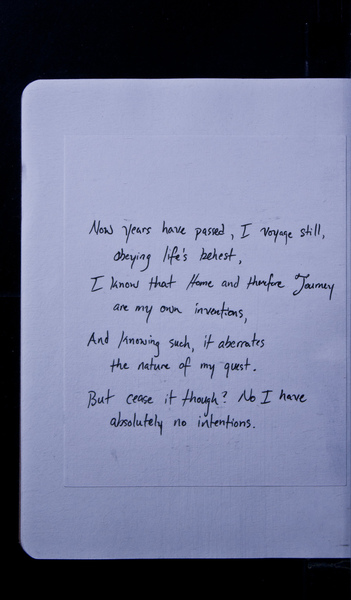 Now years have passed, I voyage still,
obeying life's behest,
I know that Home and therefore Journey
are my own inventions,
And knowing such, it aberrates
the nature of my quest.
But cease it though? No I have
absolutely no intentions.